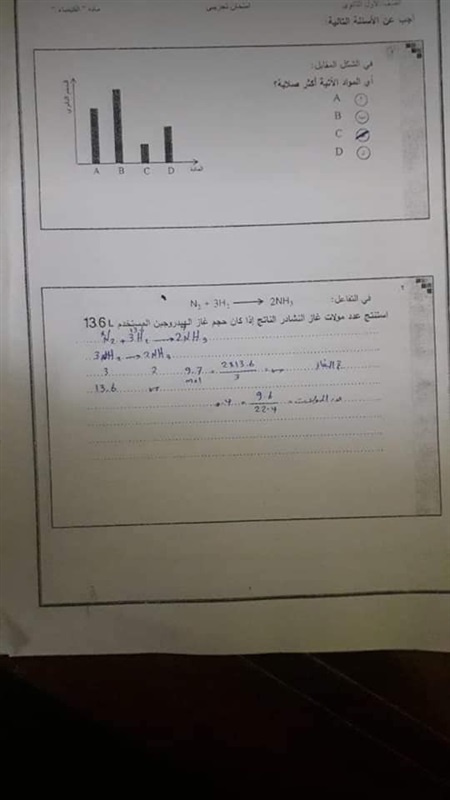 الصف الأول الثانوي امتحان تجريبي مادة " الكيمياء "
أجب عن الأسئلة التالية:
١
في الشكل المقابل:
أي المواد الآتية أكثر صلابة؟
A أ
B ب
C
D د
A B C D المادة
٢
في التفاعل: N₂ + 3H₂ ⟶ 2NH₃
استنتج عدد مولات غاز النشادر الناتج إذا كان حجم غاز الهيدروجين المستخدم 13.6 L
N₂ + 3H₂ → 2NH₃
3NH₂ → 2NH₃
3 2
13.6 س
عدد المولات = 9.6 / 22.4 = 0.4